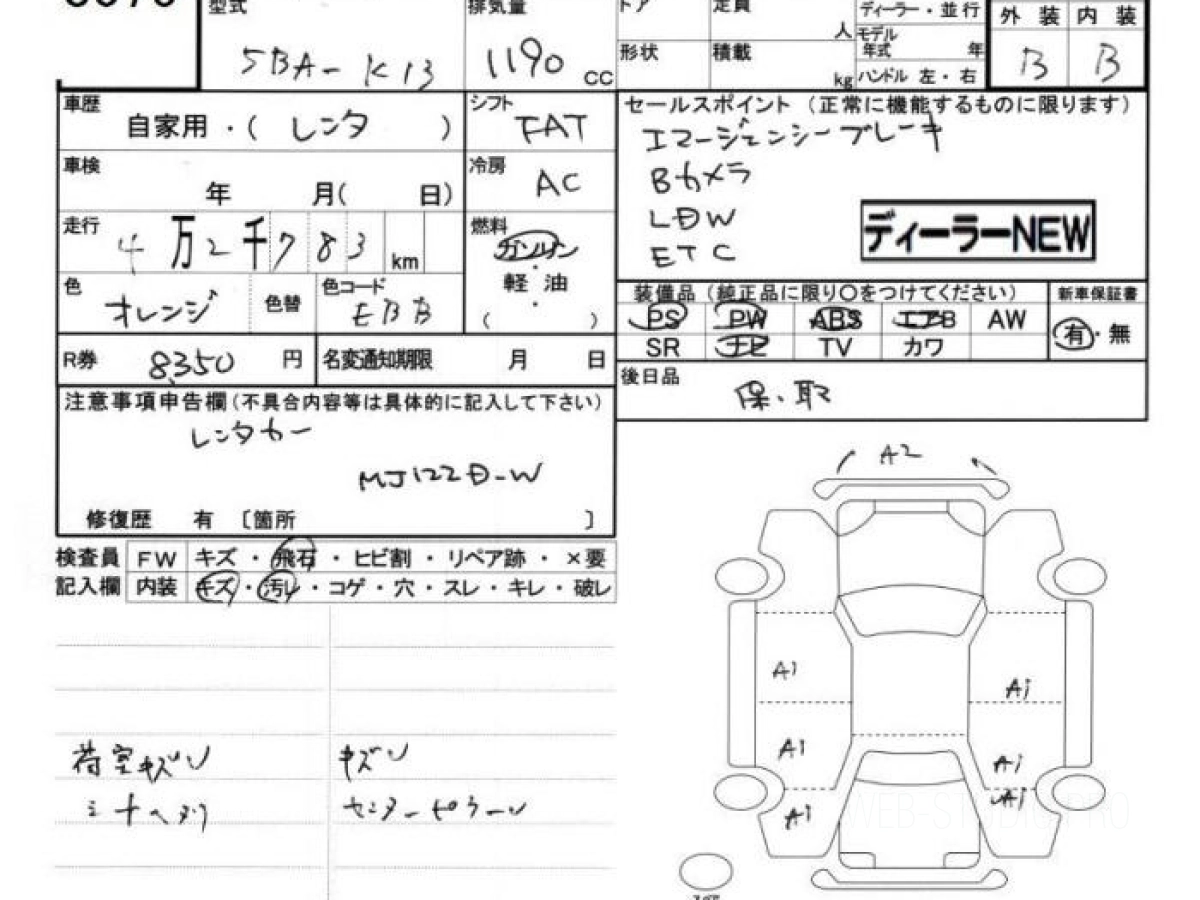 型式 排気量 ドア 定員 人 ディーラー・並行 外装 内装
モデル年式 年
5BA-K13 1190 cc 形状 積載 kg ハンドル 左・右 B B
車歴 自家用・(レンタ) シフト FAT セールスポイント(正常に機能するものに限ります)
エマージェンシーブレーキ
車検 年 月( 日) 冷房 AC Bカメラ
走行 4万2千783km 燃料 ガソリン LDW ディーラーNEW
軽油 ETC
・
( )
色 オレンジ 色替 色コード EBB 装備品(純正品に限り○をつけてください) 新車保証書
PS PW ABS エアB AW 有・無
R券 8,350円 名変通知期限 月 日 SR ナビ TV カワ
後日品 保、取
注意事項申告欄(不具合内容等は具体的に記入して下さい)
レンタカー
MJ122D-W
修復歴 有 〔箇所 〕
検査員 FW キズ・飛石・ヒビ割・リペア跡・×要
記入欄 内装 キズ・汚レ・コゲ・穴・スレ・キレ・破レ
A2
A1
A1
A1
A1
A1
A1
荷室キズ キズ
センターピラー
WEB-STUDIO.PRO